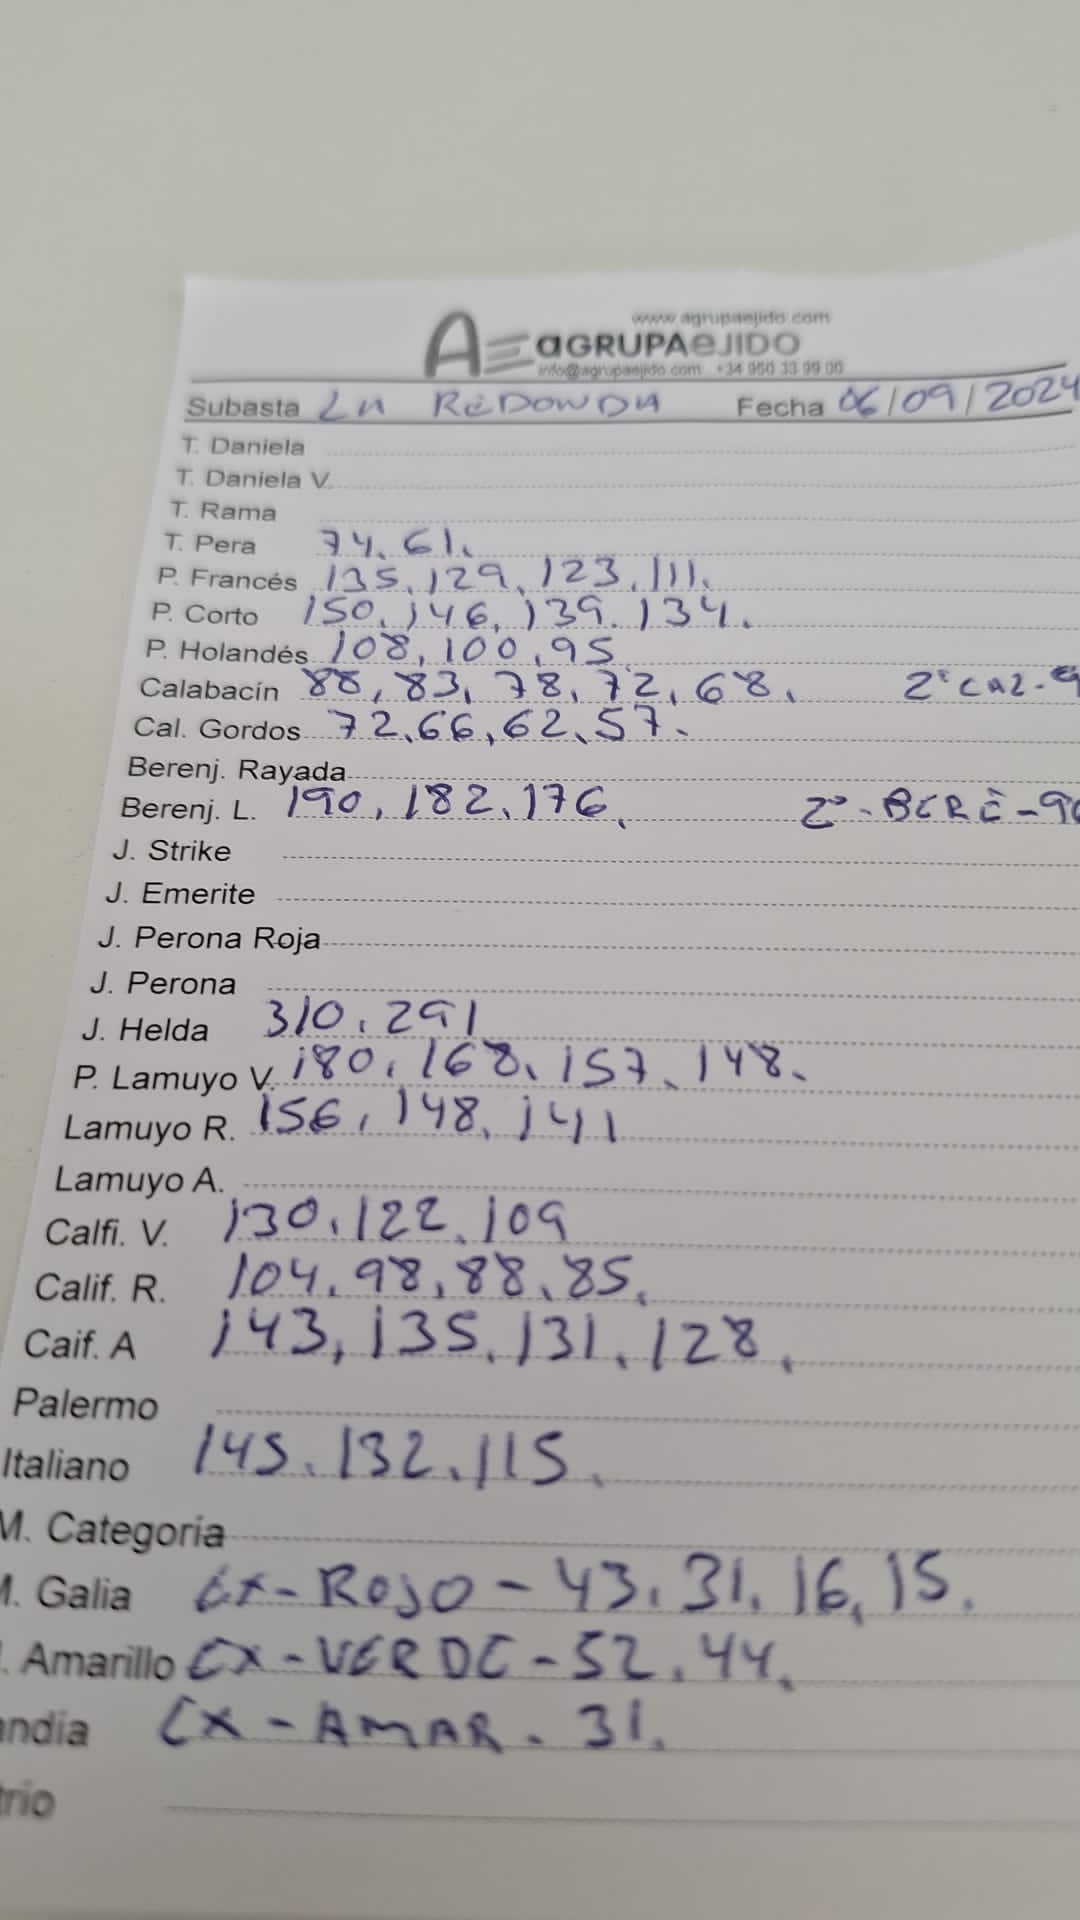 www.agrupaejido.com
AE aGRUPAeJIDO
info@agrupaejido.com +34 950 33 99 00
Subasta LA REDONDA Fecha 06/09/2024
T. Daniela
T. Daniela V.
T. Rama
T. Pera 74. 61.
P. Francés 135, 129, 123, 111.
P. Corto 150, 146, 139. 134.
P. Holandés 108, 100, 95
Calabacín 88, 83, 78, 72, 68. 2ª CAL-
Cal. Gordos 72, 66, 62, 57.
Berenj. Rayada
Berenj. L. 190, 182, 176. 2ª - BERE -
J. Strike
J. Emerite
J. Perona Roja
J. Perona
J. Helda 310. 291
P. Lamuyo V. 180, 168, 157, 148.
Lamuyo R. 156, 148, 141
Lamuyo A.
Calfi. V. 130, 122, 109
Calif. R. 104, 98, 88, 85.
Caif. A 143, 135, 131, 128.
Palermo
Italiano 145. 132. 115.
M. Categoria
. Galia EX-ROJO - 43, 31, 16, 15.
. Amarillo EX-VERDE - 52, 44.
andia EX - AMAR - 31.
trio